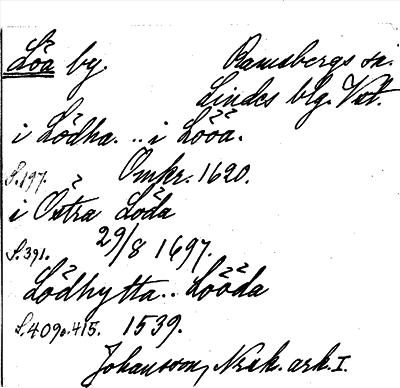 Löa by. Ramsbergs sn.
Lindes blg. Vstl.
i Lödha. .. i Lööa.
S.197. Omkr. 1620.
i Östra Löda
S.391. 29/8 1697.
Lödhytta .. Lööda
S.409o.415. 1539.
Johansson, Nrek. ark. I.